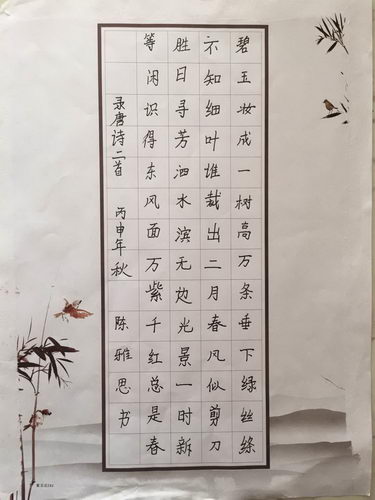 碧玉妆成一树高万条垂下绿丝绦
不知细叶谁裁出二月春风似剪刀
胜日寻芳泗水滨无边光景一时新
等闲识得东风面万紫千红总是春
录唐诗二首 丙申年秋 陈雅思书